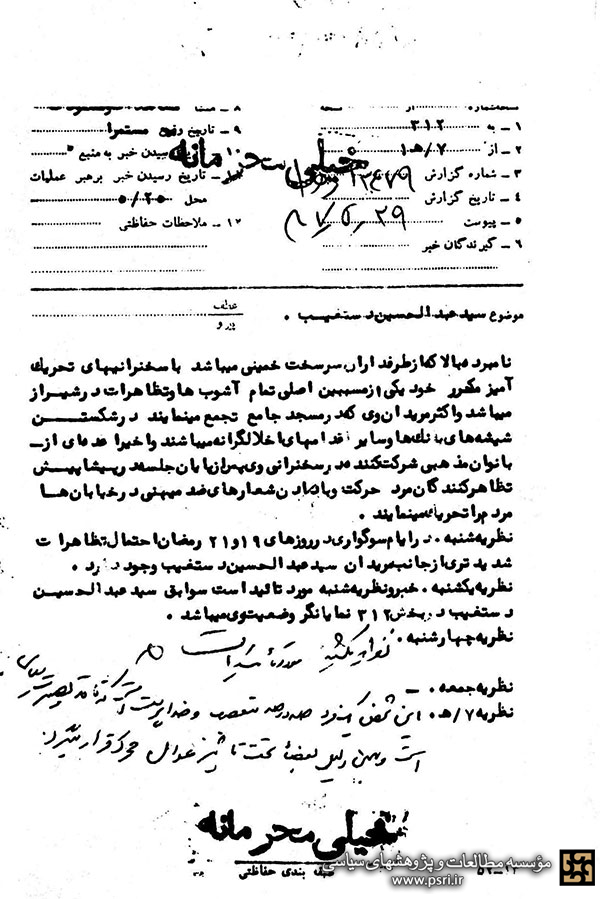 نسخه شماره ... از ... نسخه
۱ ـ به ۳۱۲
۲ ـ از ۷/ه‍ ۱
۳ ـ شماره گزارش
۴ ـ تاریخ گزارش
۵ ـ پیوست
۶ ـ گیرندگان خبر
۸ ـ منشا
۹ ـ تاریخ وقوع مستمرا
۱۰ ـ رسیدن خبر به منبع
تاریخ رسیدن خبر برهبر عملیات
محل ۲۰/۵
۱۲ ـ ملاحظات حفاظتی
خیلی محرمانه
موضوع سید عبدالحسین دستغیب .
عطف
پیرو
نامبرده بالا که از طرفداران سرسخت خمینی میباشد با سخنرانیهای تحریک
آمیز مکرر خود یکی از مسببین اصلی تمام آشوب ها و تظاهرات در شیراز
میباشد و اکثر مریدان وی که در مسجد جامع تجمع مینمایند در شکستن
شیشه های بانک ها و سایر اقدامهای اخلالگرانه میباشند و اخیرا عده ای از
بانوان مذهبی شرکت کننده در سخنرانی وی پس از پایان جلسه در پیشاپیش
تظاهر کنندگان مرد حرکت و با دادن شعارهای ضد میهنی در خیابان ها
مردم را تحریک مینمایند .
نظریه شنبه . در ایام سوگواری در روزهای ۱۹ و ۲۱ رمضان احتمال تظاهرات
شدیدتری از جانب مریدان سید عبدالحسین دستغیب وجود دارد .
نظریه یکشنبه . خبر و نظریه شنبه مورد تائید است سوابق سید عبدالحسین
دستغیب در بخش ۳۱۲ نمایانگر وضعیت وی میباشد .
نظریه چهارشنبه . نظریه یکشنبه مورد تائید است
نظریه جمعه . ـ
نظریه ۷/ه‍ . این شخص یکنفر صددرصد متعصب و ضد ایرانی است که فاقد بصیرت سیاسی
است و بهمین دلیل بعضاً تحت تاثیر عوامل محرک قرار میگیرد
خیلی محرمانه
طبقه بندی حفاظتی
مؤسسه مطالعات و پژوهشهای سیاسی
www.psri.ir